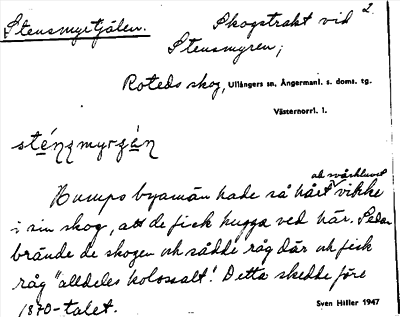 Stensmyrtjälen.
Skogstrakt vid 2.
Stensmyren;
Roteds skog, Ullångers sn, Ångermanl. s. doms. tg.
Västernorrl. l.
sténsmyrɟɑ́n
och svårkluvet
Rumps byamän hade så hårt vikke
i sin skog, att de fick hugga ved här. Sedan
brände de skogen och sådde råg där och fick
råg "alldeles kolosalt! Detta skedde före
1870-talet.
Sven Hiller 1947